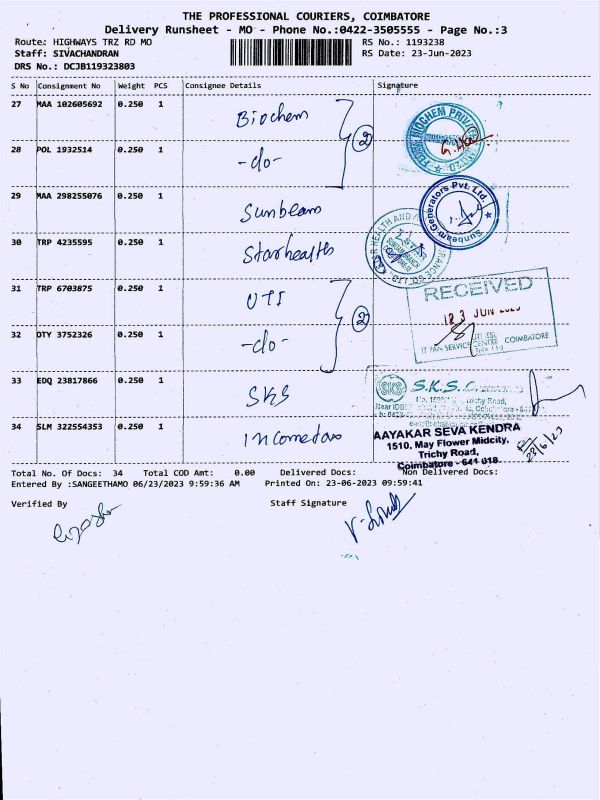 THE PROFESSIONAL COURIERS, COIMBATORE
Delivery Runsheet - MO - Phone No.:0422-3505555 - Page No.:3
Route: HIGHWAYS TRZ RD MO RS No.: 1193238
Staff: SIVACHANDRAN RS Date: 23-Jun-2023
DRS No.: DCJB119323803
S No Consignment No Weight PCS Consignee Details Signature
27 MAA 102605692 0.250 1 Biochem
28 POL 1932514 0.250 1 -do- 2
29 MAA 298255076 0.250 1 Sunbeam
Sunbeam Generators Pvt. Ltd.
30 TRP 4235595 0.250 1 Starhealth
31 TRP 6703875 0.250 1 UTI
RECEIVED
23 JUN
32 OTY 3752326 0.250 1 -do- 2
COIMBATORE
33 EDQ 23817866 0.250 1 SKS
SKS S.K.S.
Trichy Road,
34 SLM 322554353 0.250 1 Incometax
AAYAKAR SEVA KENDRA
1510, May Flower Midcity,
Trichy Road,
Coimbatore - 641 018.
23/6/23
Total No. Of Docs: 34 Total COD Amt: 0.00 Delivered Docs: Non Delivered Docs:
Entered By :SANGEETHAMO 06/23/2023 9:59:36 AM Printed On: 23-06-2023 09:59:41
Verified By Staff Signature